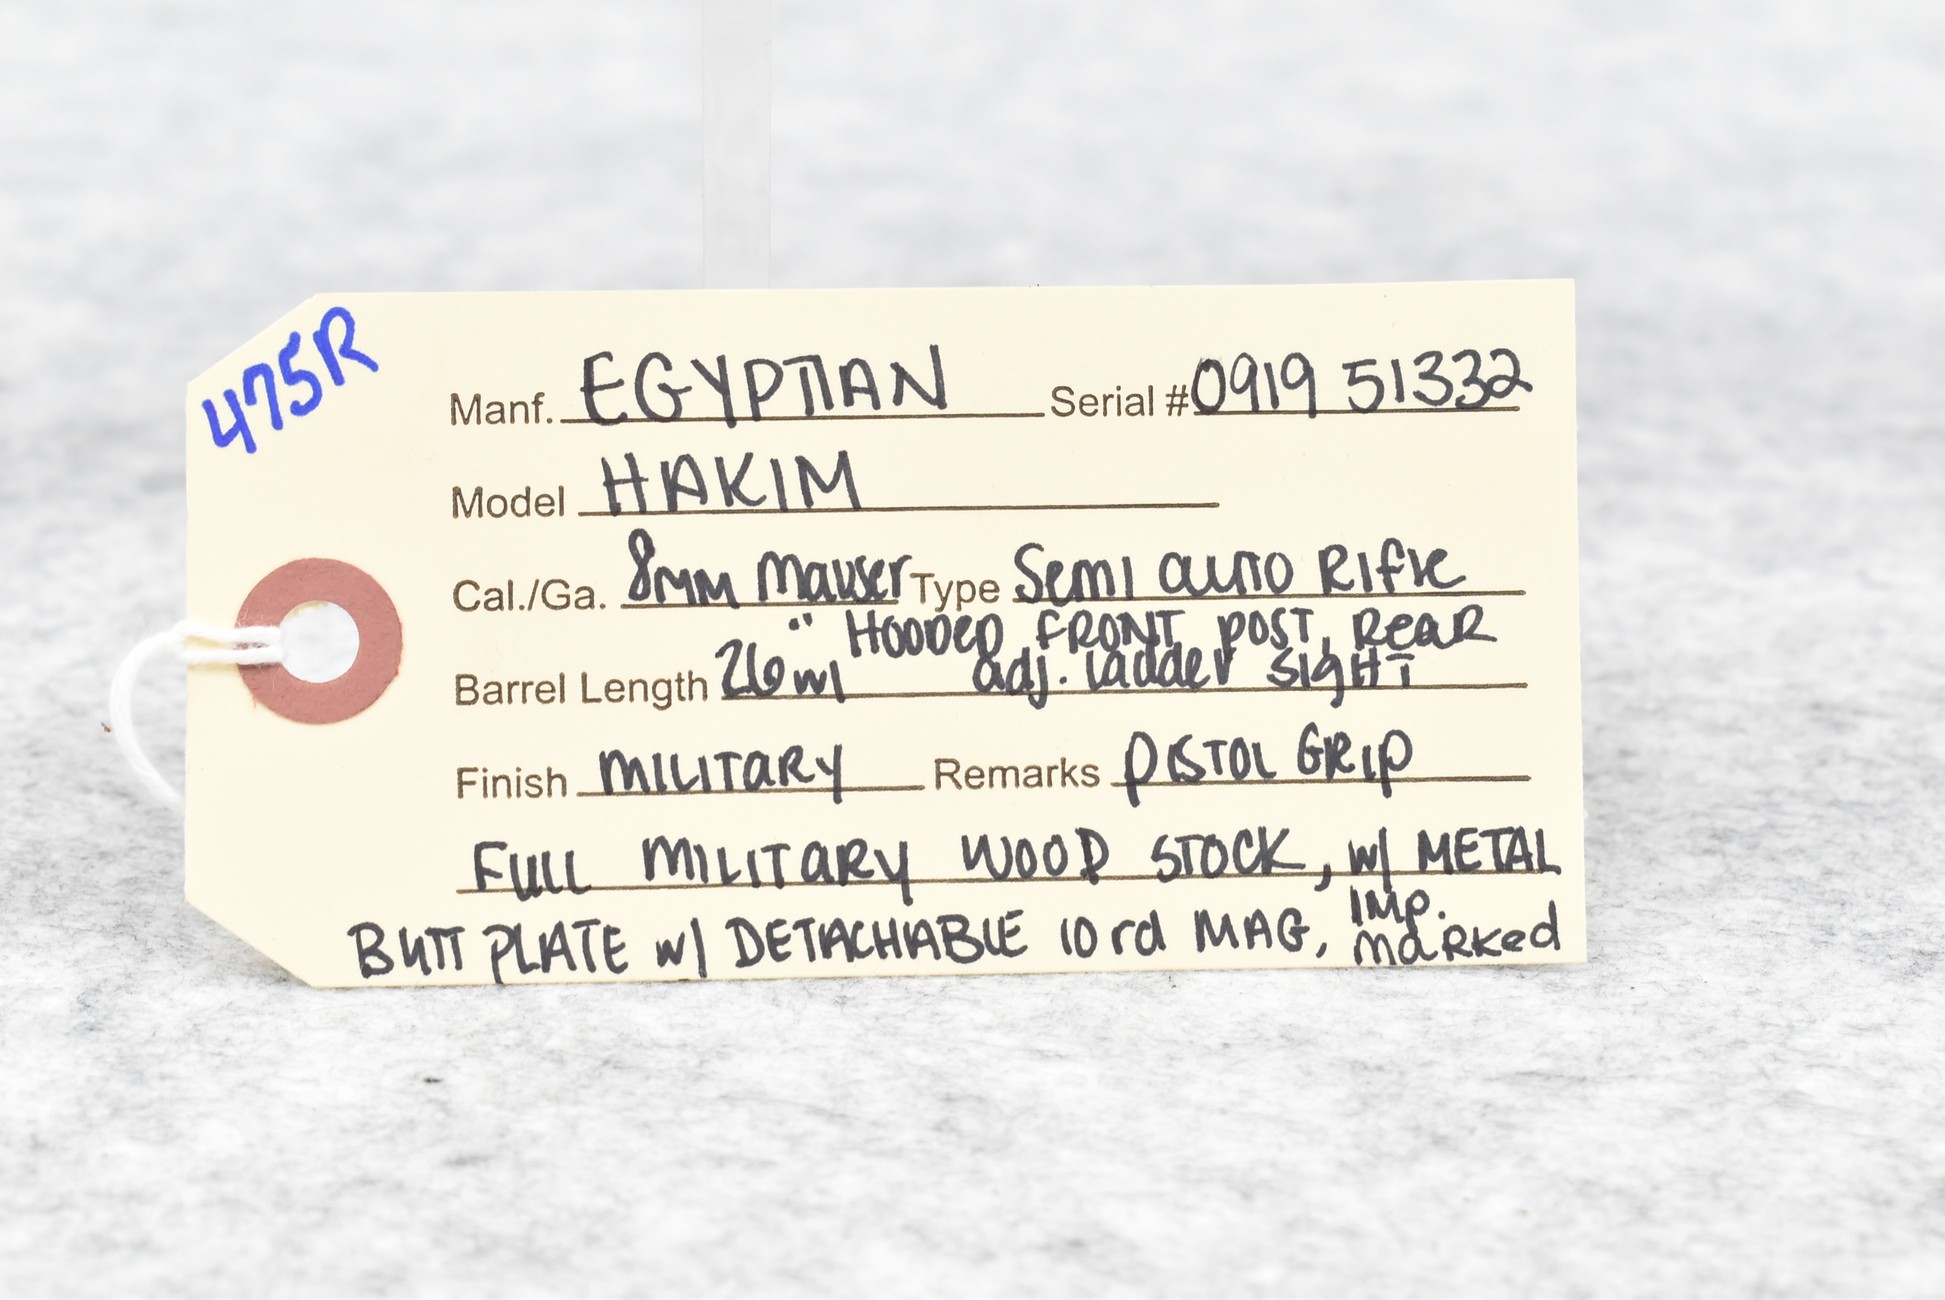 475R
Manf. EGYPTIAN Serial # 0919 51332
Model HAKIM
Cal./Ga. 8MM Mauser Type Semi auto Rifle
Barrel Length 26" w/ HOODED FRONT POST, Rear
adj. ladder SIGHT
Finish MILITARY Remarks PISTOL GRIP
FULL MILITARY WOOD STOCK, w/ METAL
BUTT PLATE w/ DETACHABLE 10 rd MAG, IMP.
MARKed